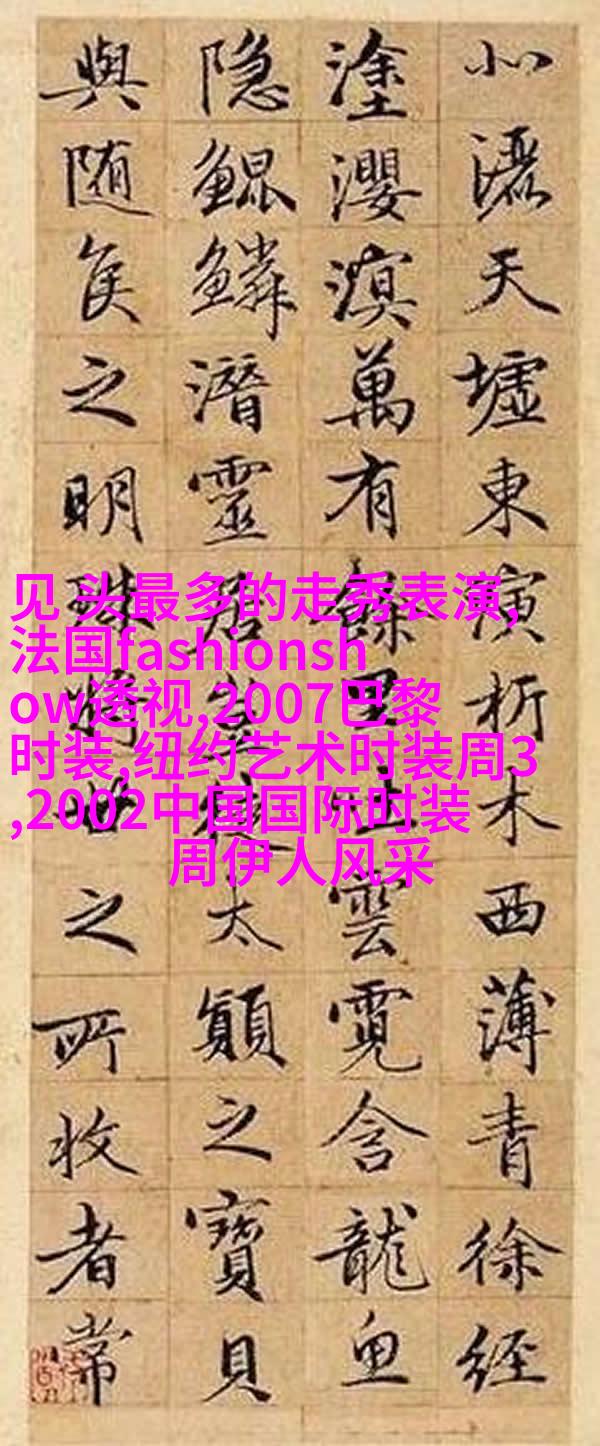 北灑天墟東演析木西薄青徐經
塗瀴溟萬有餘里吐雲霓含龍魚
隐鯤鱗潛靈居豈太顛之寶貝
與随矦之明珠將世之所收者常
见 头最多的走秀表演,
法国fashionsh
ow透视,2007巴黎
时装,纽约艺术时装周3
,2002中国国际时装
周伊人风采